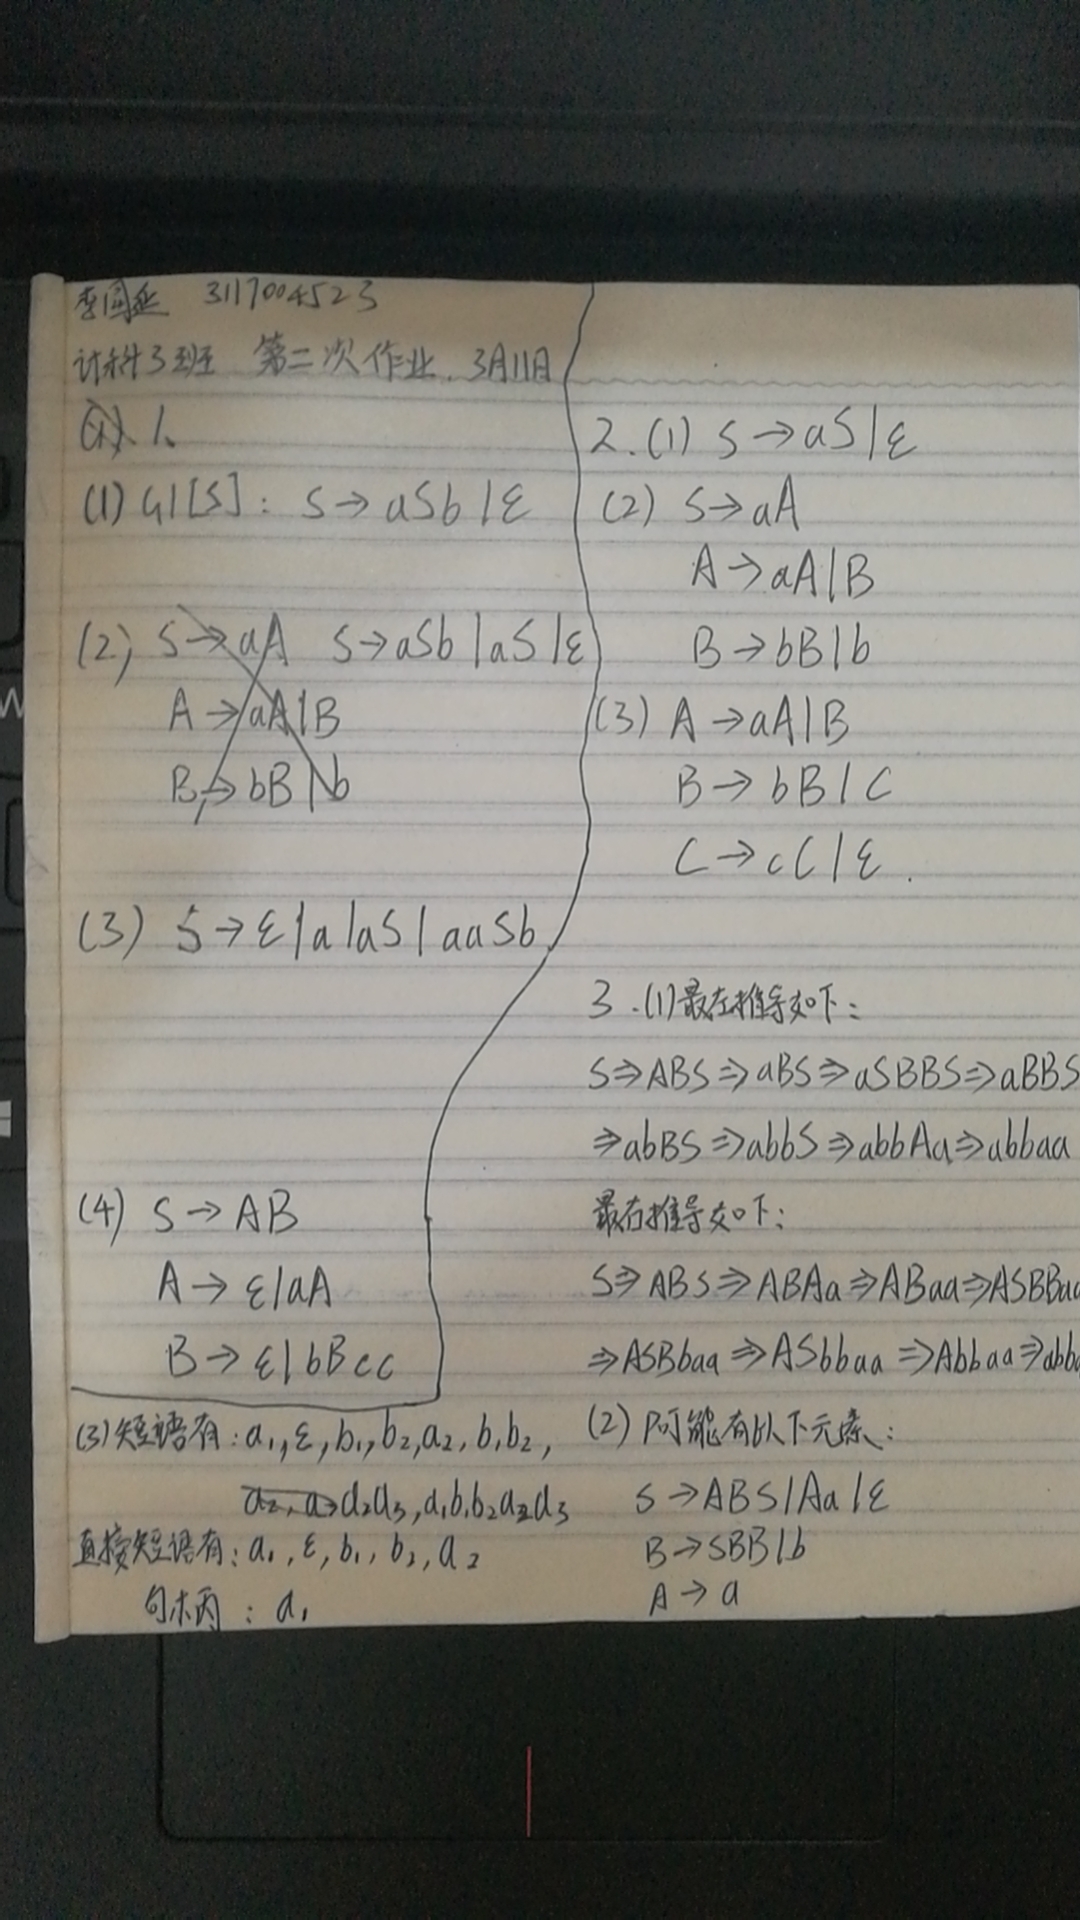 李国 3117004523
计科3班 第二次作业. 3月11日
1、
(1) G1[S]: S→aSb|ε
(2) S→aA S→aSb|aS|ε
A→aA|B
B→bB|b
(3) S→ε|a|aS|aaSb
(4) S→AB
A→ε|aA
B→ε|bBcc
2.(1) S→aS|ε
(2) S→aA
A→aA|B
B→bB|b
(3) A→aA|B
B→bB|C
C→cC|ε.
3.(1)最左推导如下:
S⇒ABS⇒aBS⇒aSBBS⇒aBBS
⇒abBS⇒abbS⇒abbAa⇒abbaa
最右推导如下:
S⇒ABS⇒ABAa⇒ABaa⇒ASBBaa
⇒ASBbaa⇒ASbbaa⇒Abbaa⇒abba
(2) 可能有以下元素:
S→ABS|Aa|ε
B→SBB|b
A→a
(3)短语有: a₁,ε,b₁,b₂,a₂,b₁b₂,
a₂a₃,a₁b₁b₂a₂a₃
直接短语有: a₁,ε,b₁,b₂,a₂
句柄: a₁